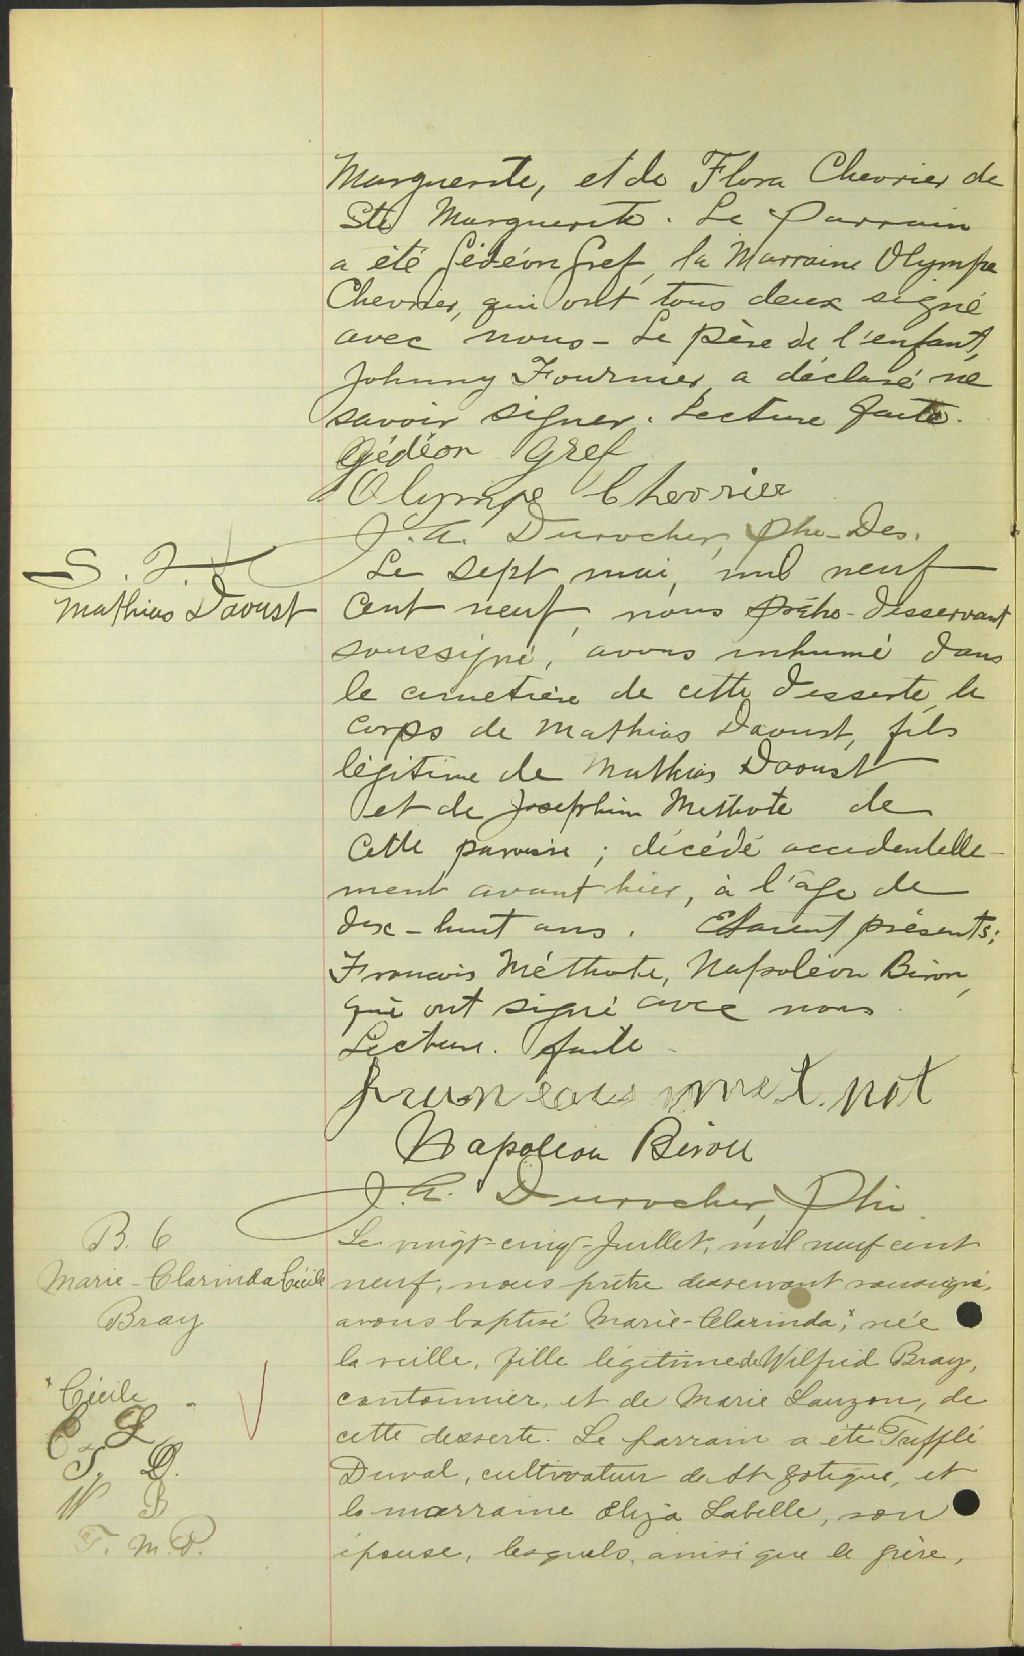 Marguerite, et de Flora Chevrier de
Ste Marguerite. Le Parrain
a été Gédéon Gref, la Marraine Olympe
Chevrier, qui ont tous deux signé
avec nous - Le père de l'enfant,
Johnny Fournier, a déclaré ne
savoir signer. Lecture faite.
Gédéon Gref
Olympe Chevrier
J. A. Durocher, Ptre-Des.
S. 7.
Mathias Daoust
Le sept mai, mil neuf
cent neuf, nous Prêtre-desservant
soussigné, avons inhumé dans
le cimetière de cette desserte, le
corps de Mathias Daoust, fils
légitime de Mathias Daoust
et de Josephine Methote de
cette paroisse ; décédé accidentelle-
ment avant hier, à l'âge de
dix-huit ans. Etaient présents;
Francois Méthote, Napoléon Biron,
qui ont signé avec nous.
Lecture. faite -
Napoleon Biron
J. A. Durocher, Ptre
B. 6
Marie-Clarinda Cécile
Bray
Le vingt-cinq-Juillet, mil neuf cent
neuf, nous prêtre desservant soussigné,
avons baptisé Marie-Clarinda,* née
la veille, fille légitime de Wilfrid Bray,
cantonnier, et de Marie Lauzon, de
cette desserte. Le parrain a été Trefflé
Duval, cultivateur de St Zotique, et
la marraine Eliza Labelle, son
épouse, lesquels, ainsi que le père,
* Cécile
E L
T. D.
W B
F. M. P.